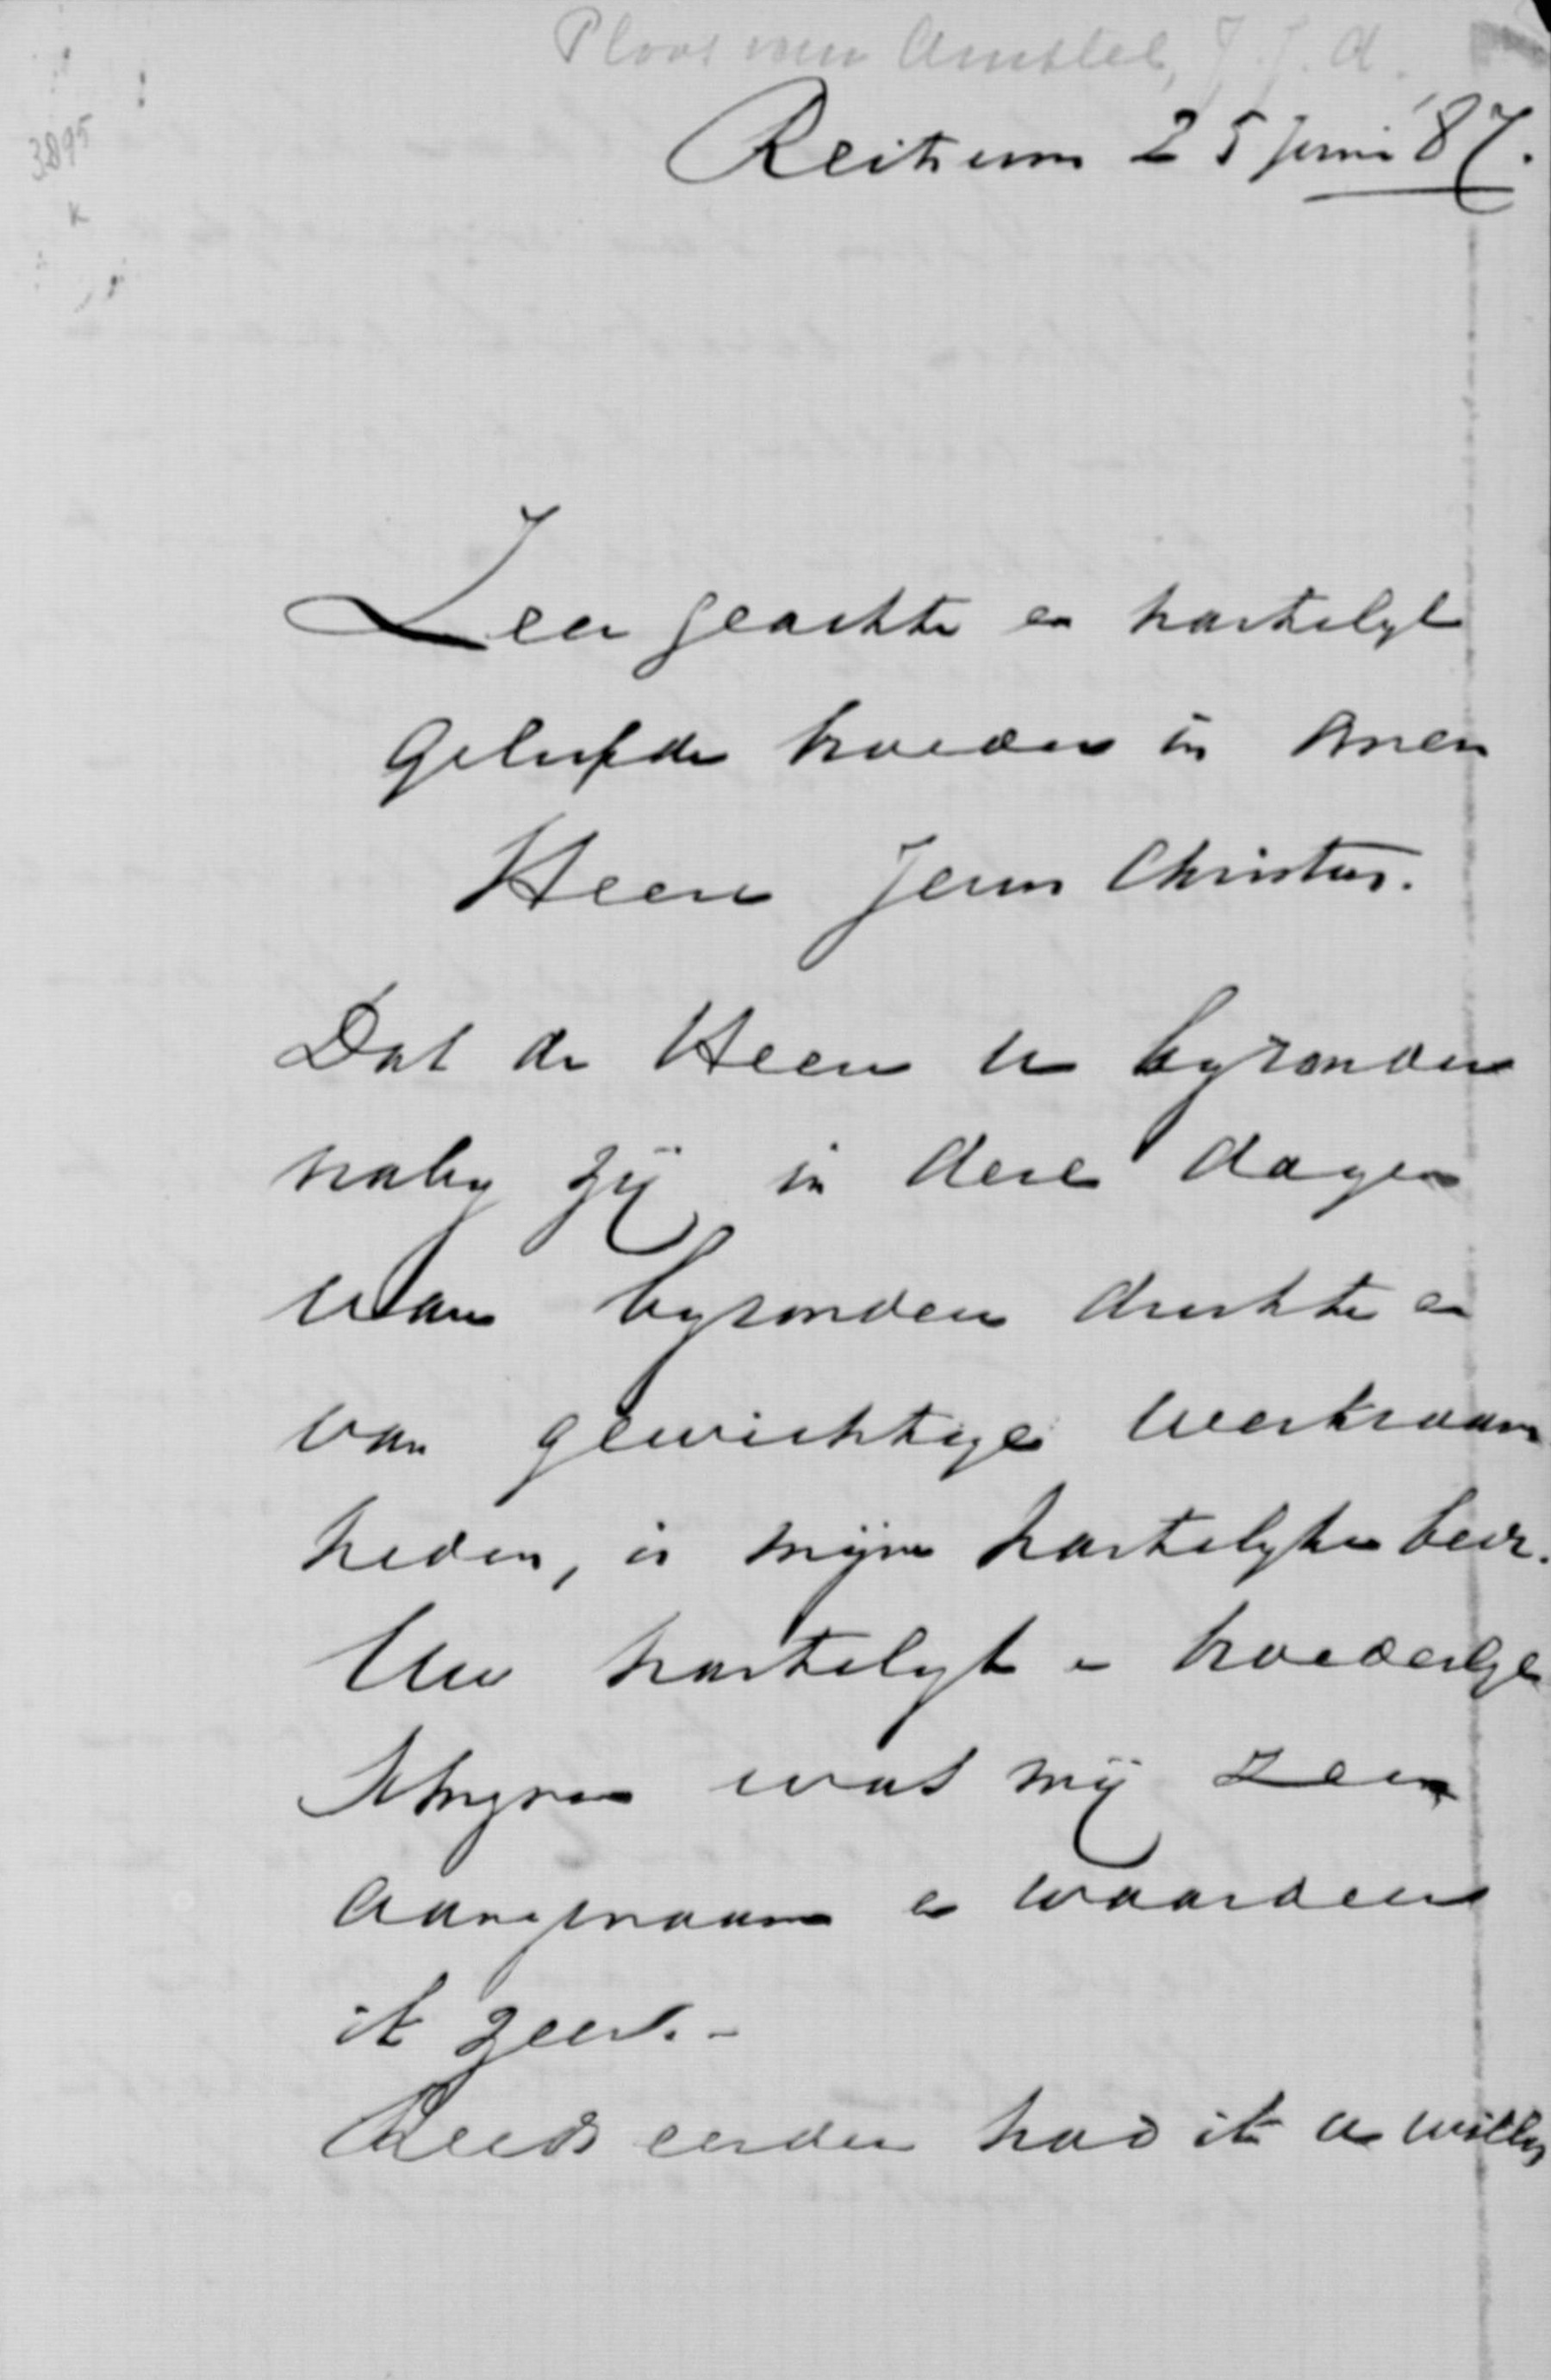 Ploos van Amstel, J.J.A.
3895
K
Reitsum 25 Juni '87.
Zeer geachte en hartelijk
geliefde broeder in onzen
Heere Jezus Christus.
Dat de Heere u byzonder
naby zij in deze dagen
van byzondere drukte en
van gewichtige werkzaam
heden, is mijne hartelyke bede.
Uw hartelyk en broederlyk
schryven was mij zeer
aangenaam en waardeer
ik zeer. -
Reeds eerder had ik u willen